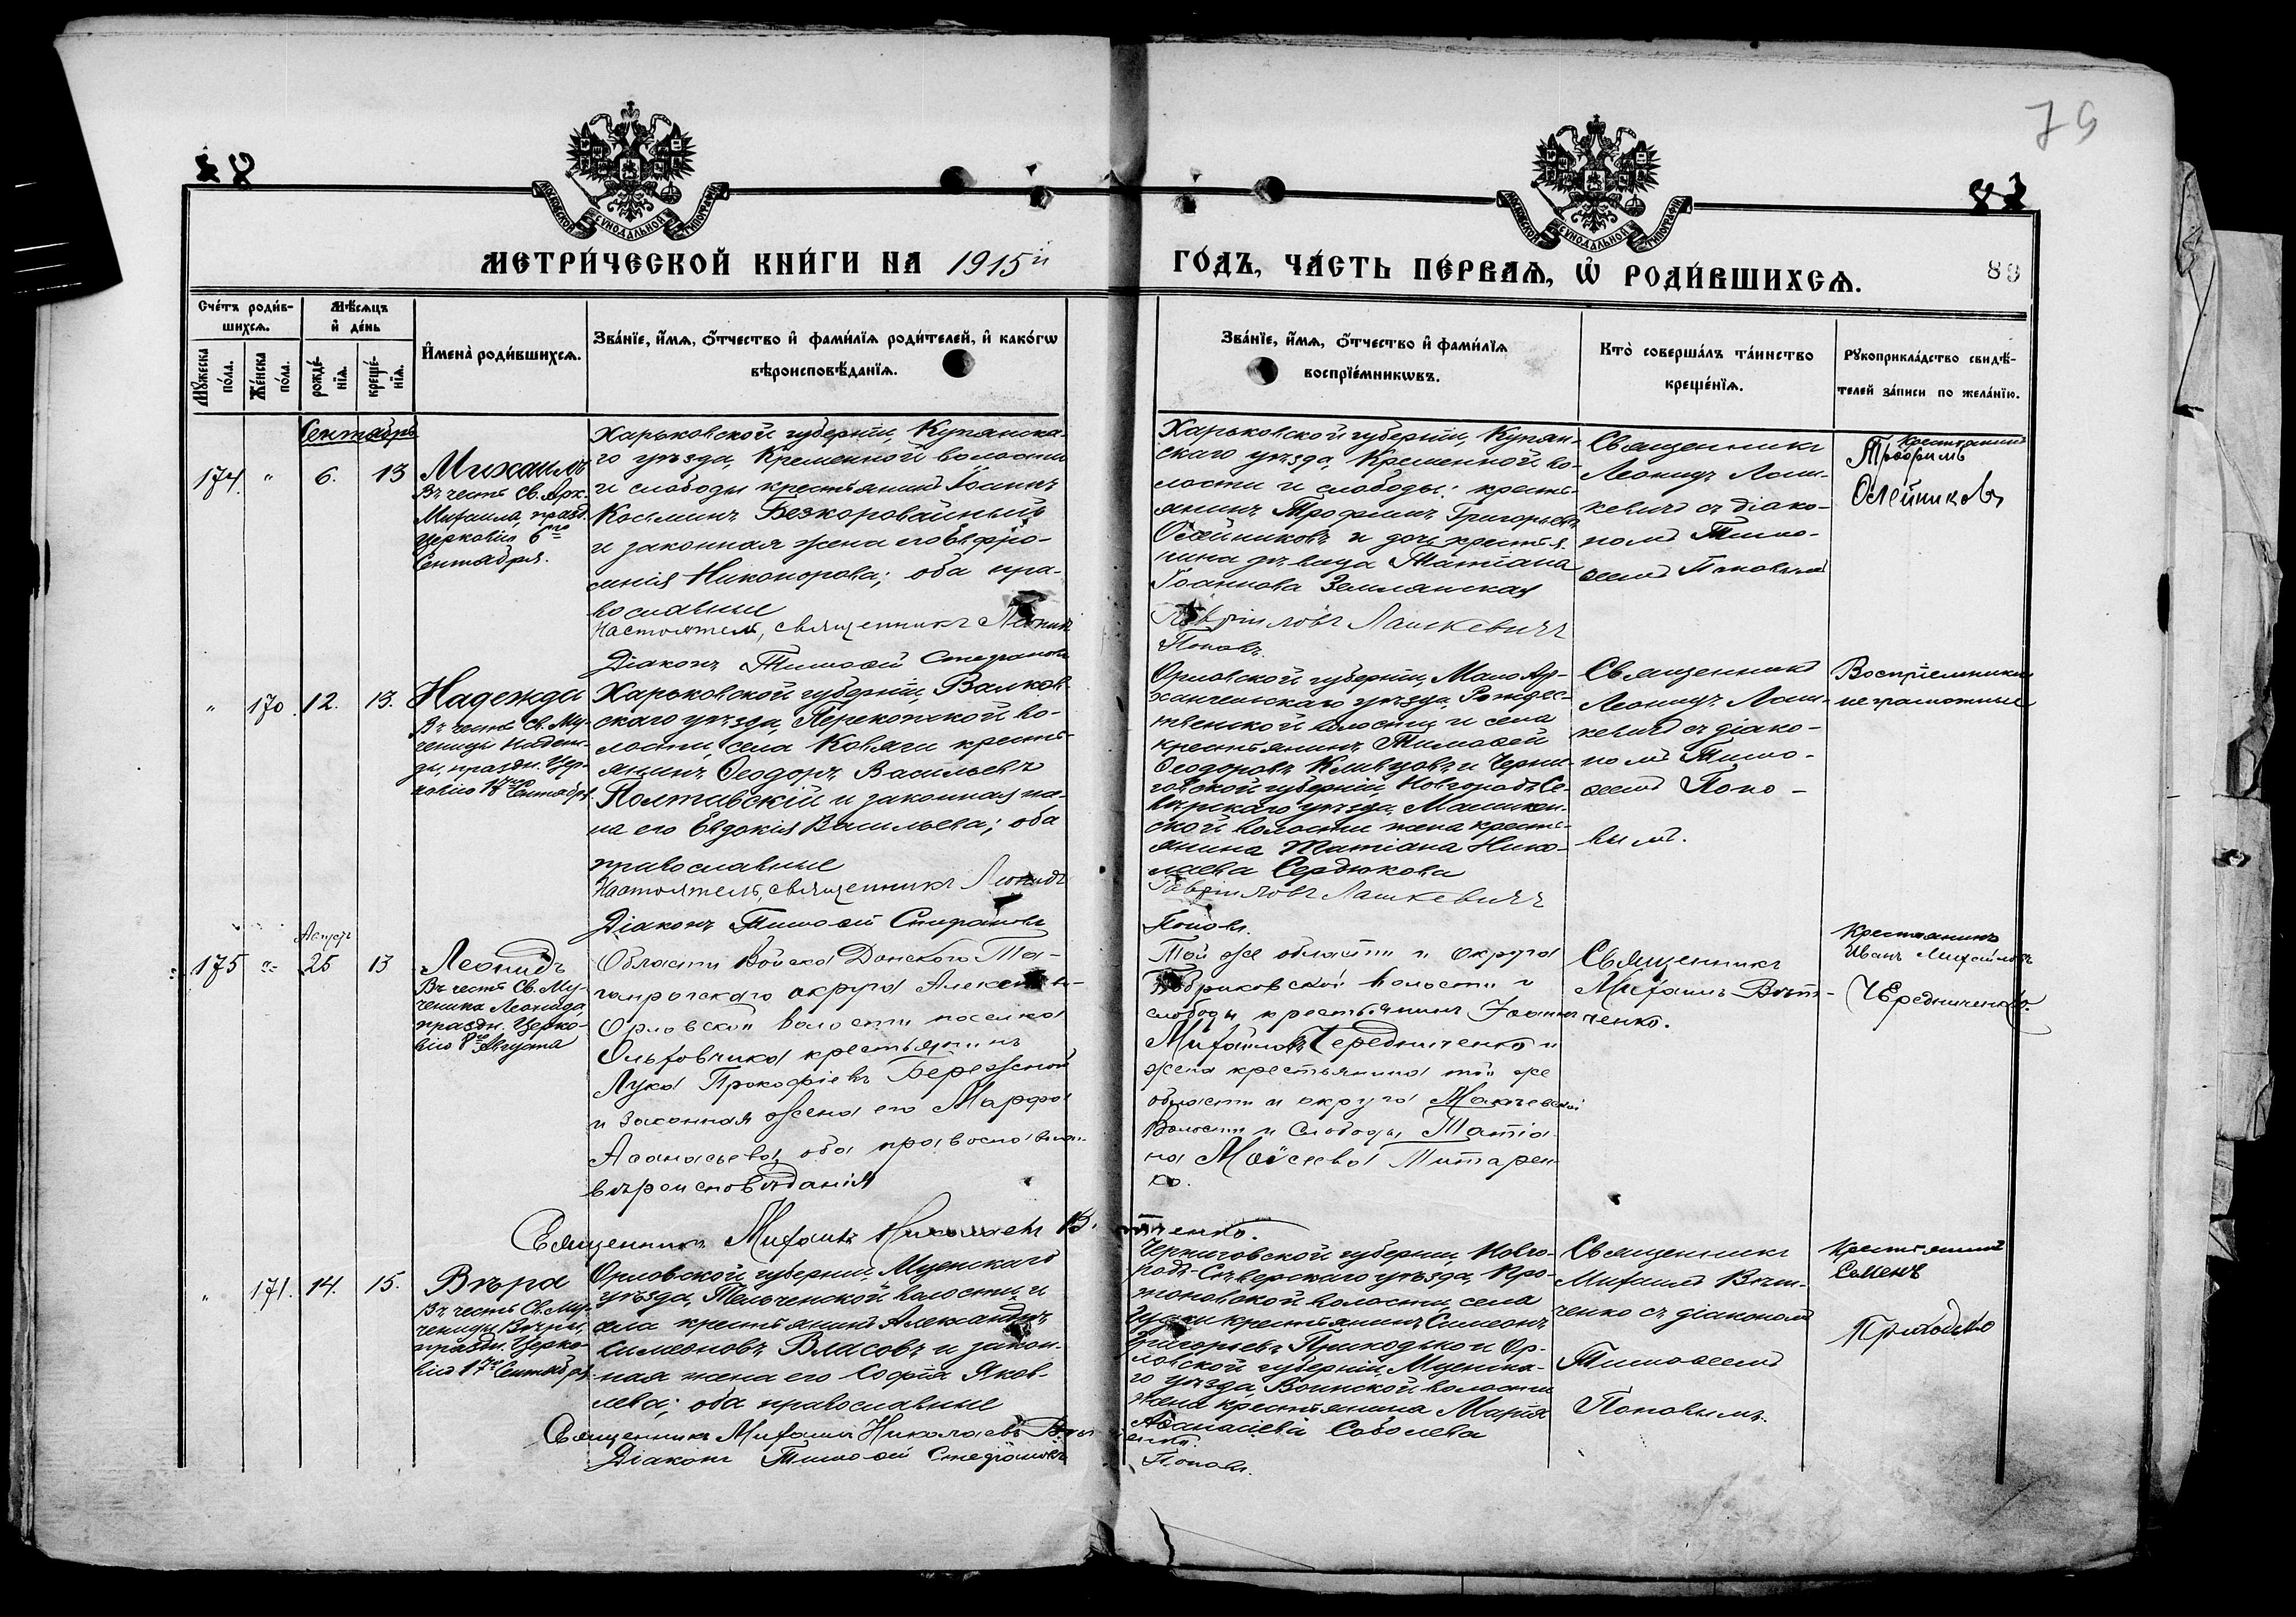 79
МОСКОВСКОЙ СѴНОДАЛЬНОЙ ТИПОГРАФІИ
МОСКОВСКОЙ СѴНОДАЛЬНОЙ ТИПОГРАФІИ
МЕТРИ́ЧЕСКОЙ КНИ́ГИ НА 1915й
ГО́ДЪ, ЧА́СТЬ ПЕ́РВАѦ, Ѡ РОДИ́ВШИХСѦ.
89
Сче́тъ роди́в-
шихсѧ.
Мꙋжеска по́ла.
Же́нска по́ла.
Мѣ́сѧцъ
и де́нь
рожде́-
нїѧ.
креще́-
нїѧ.
Имена̀ роди́вшихсѧ.
Зва́нїе, и́мѧ, о́тчество и фами́лїѧ роди́телей, и како́гѡ
вѣроисповѣ́данїѧ.
Зва́нїе, и́мѧ, о́тчество и фами́лїѧ
воспрїе́мникѡвъ.
Кто̀ соверша́лъ та́инство
креще́нїѧ.
Рꙋкоприкла́дство свидѣ́-
телей за́писи по жела́нїю.
Сентябрь
174. " 6. 13
Михаилъ
Въ честь Св. Арх.
Михаила, празд.
Церковію 6го
Сентября.
Харьковской губерніи, Купянска-
го уѣзда, Кременной волости
и слободы крестьянинъ Іоаннъ
Косьминъ Безкоровайный
и законная жена его Евфро-
синія Никонорова; оба пра-
вославные
Настоятель, священникъ Леонидъ
Діаконъ Тимоѳей Стефановъ
Харьковской губерніи, Купян-
скаго уѣзда, Кременной во-
лости и слободы: кресть-
янинъ Трофимъ Григорьевъ
Олейниковъ и дочь крестья-
нина дѣвица Татіана
Іоаннова Землянская
Гавріиловъ Лашкевичъ
Поповъ.
Священникъ
Леонидъ Лаш-
кевичъ съ діако-
номъ Тимо-
ѳеемъ Поповымъ
Крестьянинъ
Трофимъ
Олейниковъ
" 170. 12. 13.
Надежда
Въ честь Св. Му-
ченицы Надеж-
ды, праздн. Цер-
ковію 17го Сентября
Харьковской губерніи, Валков-
скаго уѣзда, Перекопской во-
лости, села Ковяги кресть-
янинъ Ѳеодоръ Васильевъ
Полтавскій и законная же-
на его Евдокія Васильева; оба
православные
Настоятель, священникъ Леонидъ
Діаконъ Тимоѳей Стефановъ
Орловской губерніи, Мало Ар-
хангельскаго уѣзда, Рождес-
твенской волости и села
крестьянинъ Тимоѳей
Ѳеодоровъ Климцовъ и Черни-
говской губерніи, Новгородъ Се-
вѣрскаго уѣзда,
ской волости жена кресть-
янина Татіана Нико-
лаева Сердюкова
Гавріиловъ Лашкевичъ
Поповъ.
Священникъ
Леонидъ Лаш-
кевичъ съ діако-
номъ Тимо-
ѳеемъ Попо-
вымъ.
Воспріемники
неграмотные
Августъ
175 " 25 13
Леонидъ
Въ честь Св. Му-
ченика Леонида,
праздн. Церко-
вію 8го Августа
Области Войска Донского Та-
ганрогскаго округа Алексѣево-
Орловской волости поселка
Ольховчика крестьянинъ
Лука Прокофіевъ Бережной
и законная жена его Марфа
Аѳанасьева, оба православна-
вѣроисповѣданія
Священникъ Михаилъ Николаевъ Вѣт-
ченко.
Той же области и округа
Бобриковской волости и
слободы крестьянинъ Іоаннъ
Михайловъ Чередниченко и
жена крестьянина той же
области и округа Макѣевской
Волости и Слободы, Татіа-
на Моѵсеева Титарен-
ко.
Священникъ
Михаилъ Вѣт-
ченко.
Крестьянинъ
Иванъ Михайловъ
Чередниченко.
" 171. 14. 15.
Вѣра
Въ честь Св. Му-
ченицы Вѣры,
праздн. Церко-
вію 17го Сентября
Орловской губерніи, Мценскаго
уѣзда, Тельченской волости и
села крестьянинъ Александръ
Симеоновъ Власовъ и закон-
ная жена его Софія Яков-
лева; оба православные
Священникъ Михаилъ Николаевъ Вѣт
ченко.
Діаконъ Тимоѳей Стефановъ
Поповъ.
Черниговской губерніи, Новго-
родъ-Сѣверскаго уѣзда,
волости, села
крестьянинъ Симеонъ
Григорьевъ Приходько и Ор-
ловской губерніи, Мценска-
го уѣзда, Воинской волости
жена крестьянина Марія
Аѳанасіева Соболева
Священникъ
Михаилъ Вѣт-
ченко съ діакономъ
Тимоѳеемъ
Поповымъ.
Крестьянинъ
Семенъ
Приходько